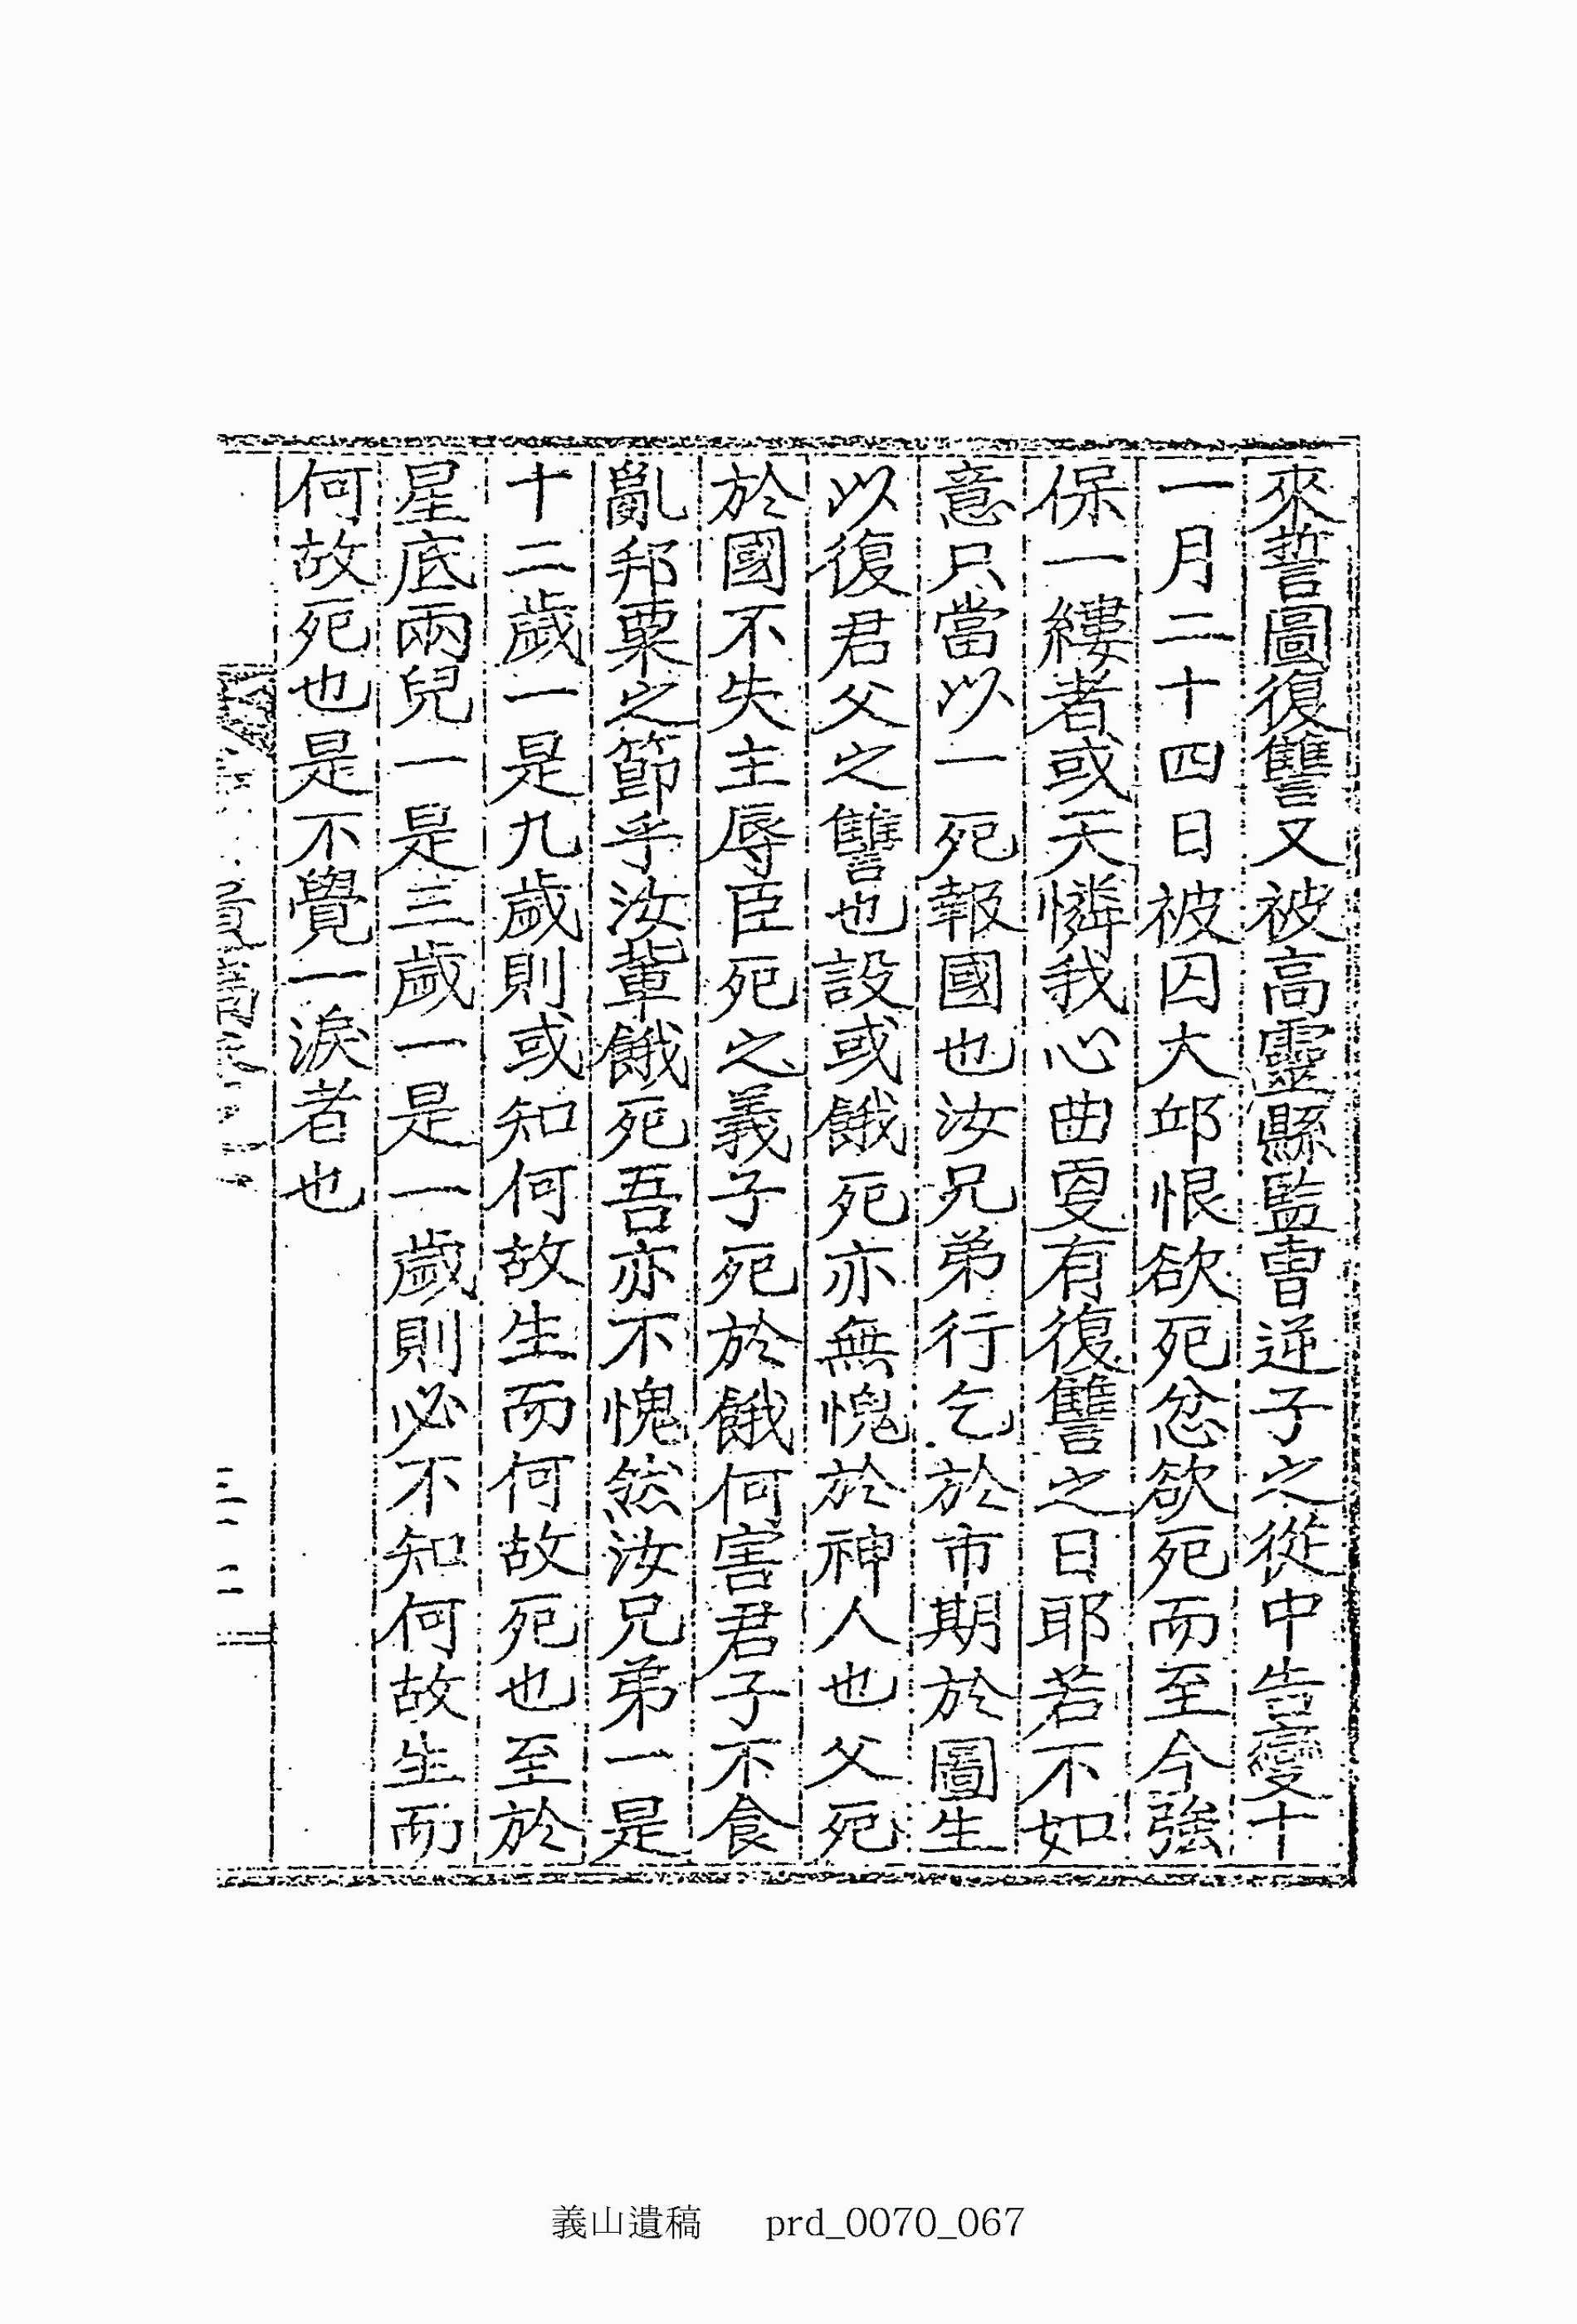 來誓圖復讐又被高靈縣監曺逆子之從中告變十
一月二十四日被囚大邱恨欲死忿欲死而至今強
保一縷者或天憐我心曲更有復讐之日耶若不如
意只當以一死報國也汝兄弟行乞於市期於圖生
以復君父之讐也設或餓死亦無愧於神人也父死
於國不失主辱臣死之義子死於餓何害君子不食
亂邦粟之節乎汝輩餓死吾亦不愧然汝兄弟一是
十二歲一是九歲則或知何故生而何故死也至於
星底兩兒一是三歲一是一歲則必不知何故生而
何故死也是不覺一淚者也
義山遺稿 prd_0070_067